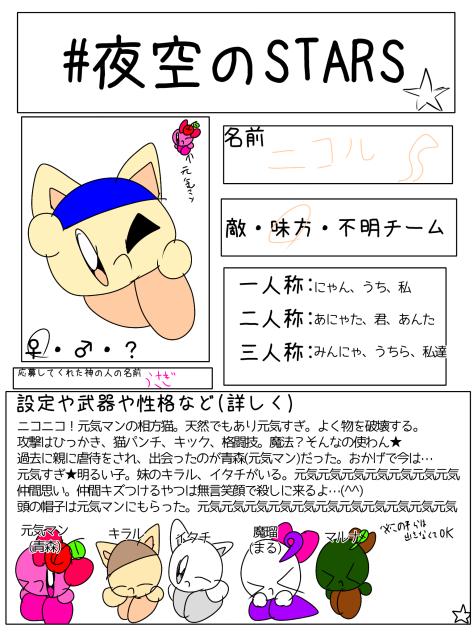 #夜空のSTARS
元気マン
名前
ニコル
敵・味方・不明チーム
一人称:にゃん、うち、私
二人称:あにゃた、君、あんた
三人称:みんにゃ、うちら、私達
♀・♂・?
応募してくれた神の人の名前
うさぎ
設定や武器や性格など(詳しく)
ニコニコ！元気マンの相方猫。天然でもあり元気すぎ。よく物を破壊する。
攻撃はひっかき、猫パンチ、キック、格闘技。魔法？そんなの使わん★
過去に親に虐待をされ、出会ったのが青森(元気マン)だった。おかげで今は…
元気すぎ★明るい子。妹のキラル、イタチがいる。元気元気元気元気元気元気元気
仲間思い。仲間キズつけるやつは無言笑顔で殺しに来るよ…(^^)
頭の帽子は元気マンにもらった。元気元気元気元気元気元気元気元気元気元気元気
元気マン
(青森)
キラル
イタチ
魔瑠
(まる)
マルナ
※この子らは
出さなくてOK